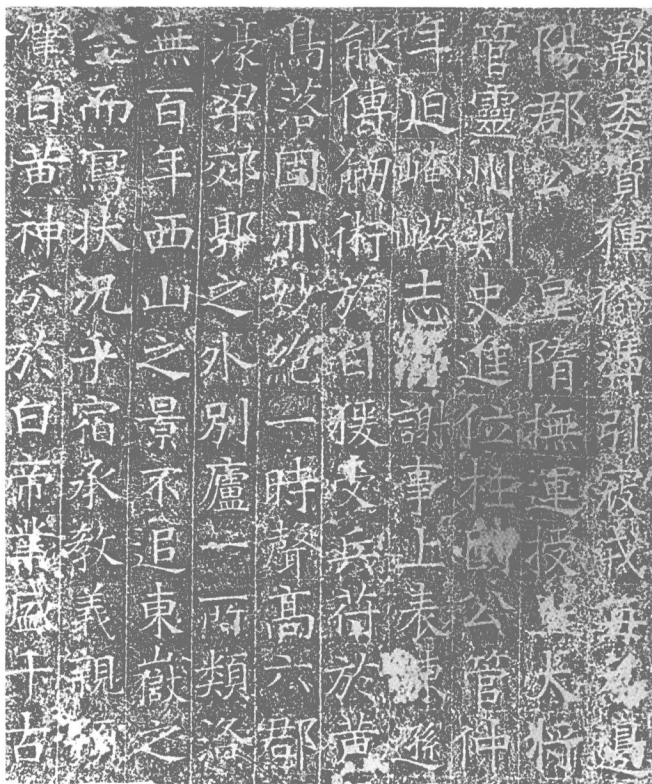 瀚委引寇戎
陽郡公皇隋撫運授上大将
管靈州刺史進位柱國公管仲
年迫崦嵫志謝事上表陳遜
能傳劒術於白猨受兵符於黄
落亦妙絶一時聲高六郡
濠梁郊郭之外別廬一所類洛
無百年西山之景不追東嶽之
金而寫狀況乎宿承教義親
肇自黄神分於白帝業盛千古